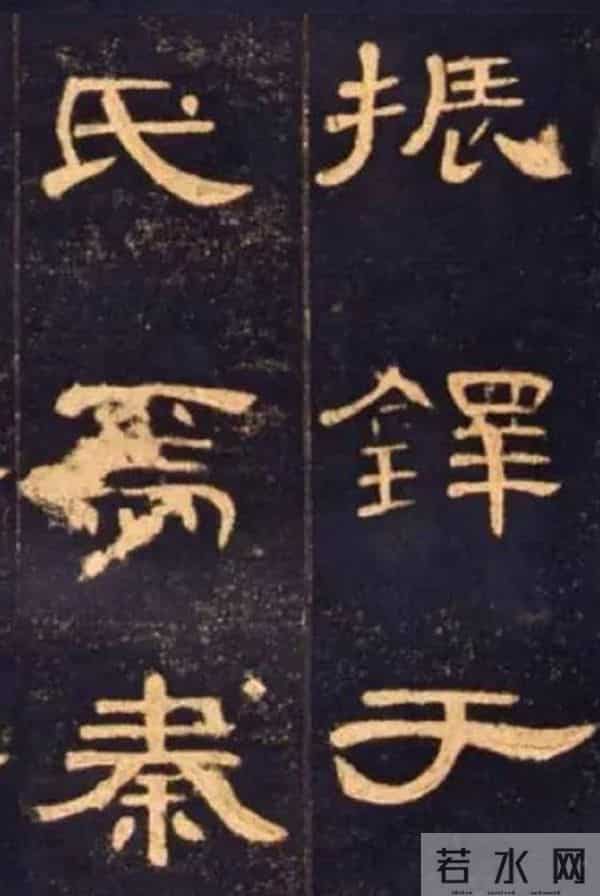 振鐸于
氏焉秦
若水网